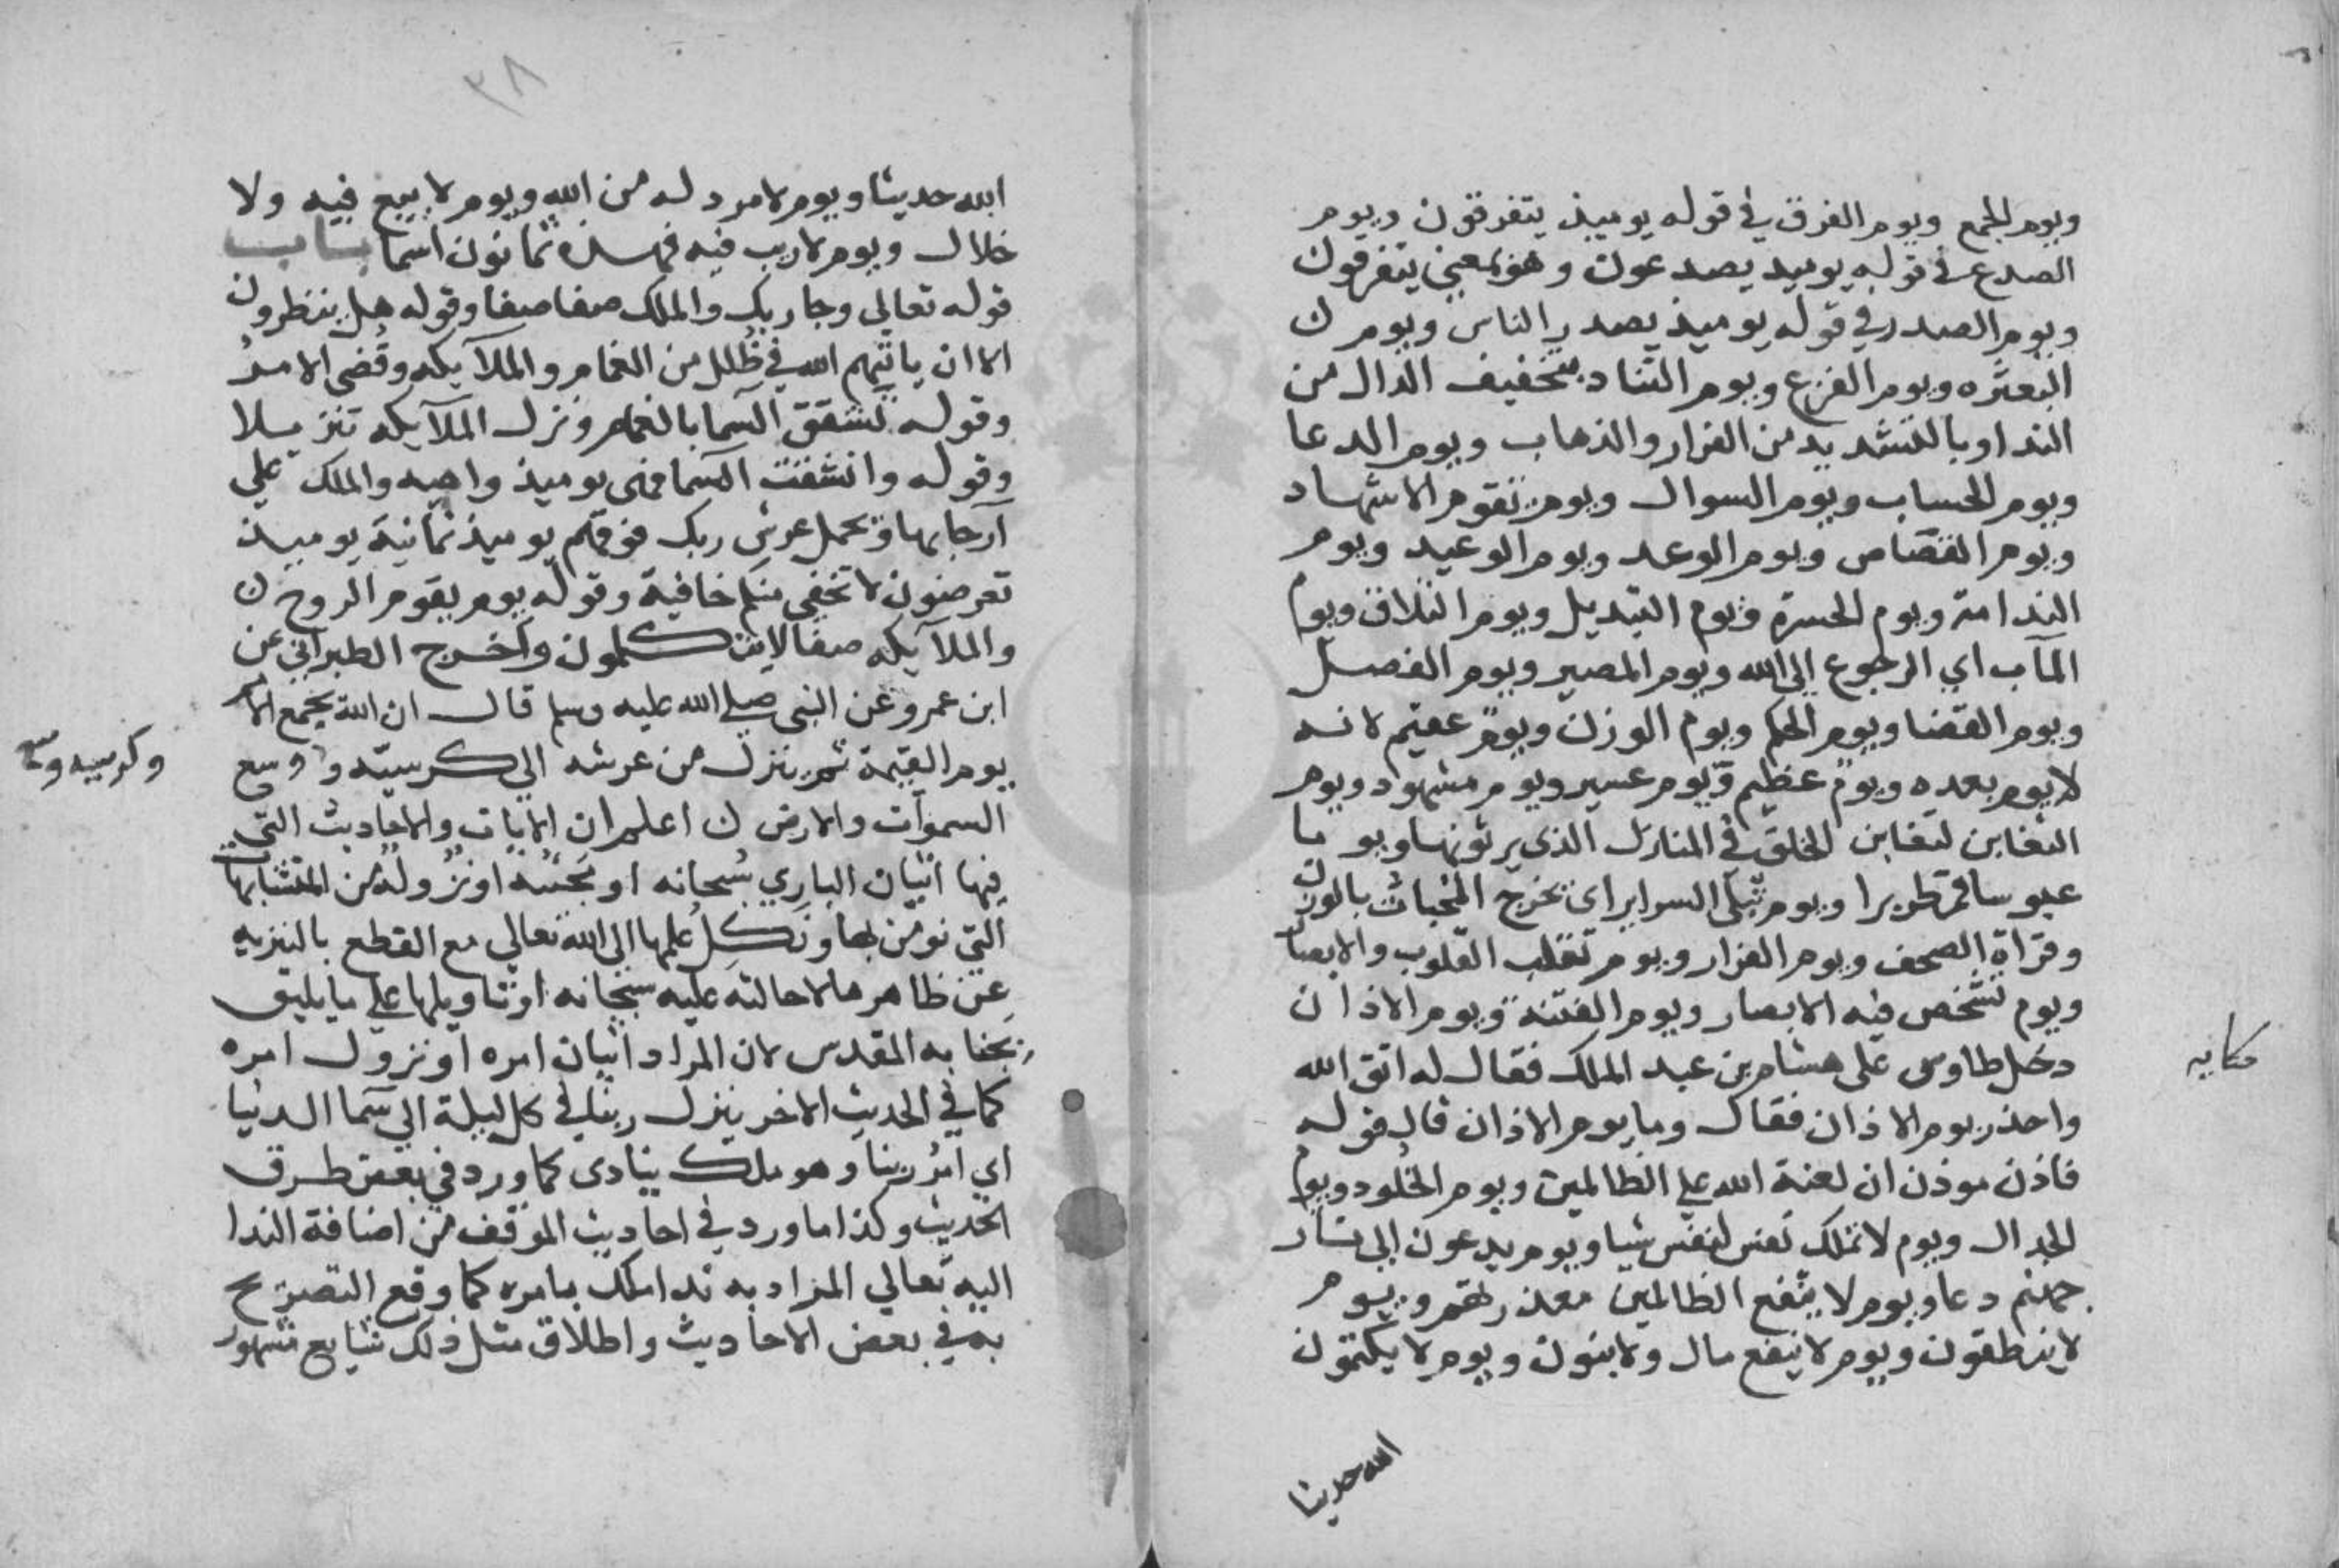 ويوم الجمع ويوم الفرق في قوله يوميذ يتفرقون ويوم
الصدع في قوله يوميد يصدعون وهو بمعني يتفرقون
ويوم الصدر في قوله يوميذ يصدر الناس ويوم
البعثره ويوم الفزع ويوم التناد بتخفيف الدال من
الندا وبالتشديد من الفرار والذهاب ويوم الدعا
ويوم الحساب ويوم السوال ويوم تقوم الاشهاد
ويوم القصاص ويوم الوعد ويوم الوعيد ويوم
الندامة ويوم الحسرة ويوم التبديل ويوم التلاق ويوم
المآب اي الرجوع الى الله ويوم المصير ويوم الفصل
ويوم القضا ويوم الحكم ويوم الوزن ويوم عقيم لانه
لا يوم بعده ويوم عظيم ويوم عسير ويوم مشهود ويوم
التغابن لتغابن الخلق في المنازل الذي يرثونها ويوما
عبوسا قمطريرا ويوم تبلى السراير اي تخرج المخبات
وقراة الصحف ويوم الفرار ويوم تقلب القلوب والابصار
ويوم تشخص فيه الابصار ويوم الفتنة ويوم الاذان
دخل طاوس على هشام بن عبد الملك فقال له اتق الله
واحذر يوم الاذان فقال وما يوم الاذان قال قوله
فاذن موذن ان لعنة الله علي الظالمين ويوم الخلود ويوم
الجدال ويوم لا تملك نفس لنفس شيا ويوم يدعون الى نار
جهنم دعا ويوم لا ينفع الظالمين معذرتهم ويوم
لا ينطقون ويوم لا ينفع مال ولا بنون ويوم لا يكتمون
الله حديثا
حكايه
٣٨
الله حديثا ويوم لا مرد له من الله ويوم لا بيع فيه ولا
خلال ويوم لا ريب فيه فهذه ثمانون اسما باب
قوله تعالي وجا ربك والملك صفا صفا وقوله هل ينظرون
الا ان ياتيهم الله في ظلل من الغمام والملآيكه وقضى الامر
وقوله تشقق السما بالغمام ونزل الملآيكه تنزيلا
وقوله وانشقت السما فهى يوميذ واهيه والملك علي
ارجايها ويحمل عرش ربك فوقهم يوميذ ثمانية يوميذ
تعرضون لا تخفي منكم خافية وقوله يوم يقوم الروح
والملآيكه صفا لا يتكلمون واخرج الطبراني عن
ابن عمرو عن النبي صلي الله عليه وسلم قال ان الله يجمع الامم
يوم القيمة ثم ينزل من عرشه الي كرسيه وسع
السموات والارض اعلم ان الايات والاحاديث التي
فيها اتيان الباري سبحانه او مجيئه او نزوله من المتشابهات
التي نومن بها ونكل علمها الى الله تعالي مع القطع بالتنزيه
عن ظاهرها لاحالته عليه سبحانه او تاويلها علي ما يليق
بجنابه المقدس لان المراد اتيان امره او نزول امره
كما في الحديث الاخر ينزل ربنا في كل ليلة الي سما الدنيا
اي امر ربنا وهو ملك ينادى كما ورد في بعض طرق
الحديث وكذا ما ورد في احاديث الموقف من اضافة الندا
اليه تعالي المراد به ندا ملك بامره كما وقع التصريح
به في بعض الاحاديث واطلاق مثل ذلك شايع مشهور
وكرسيه